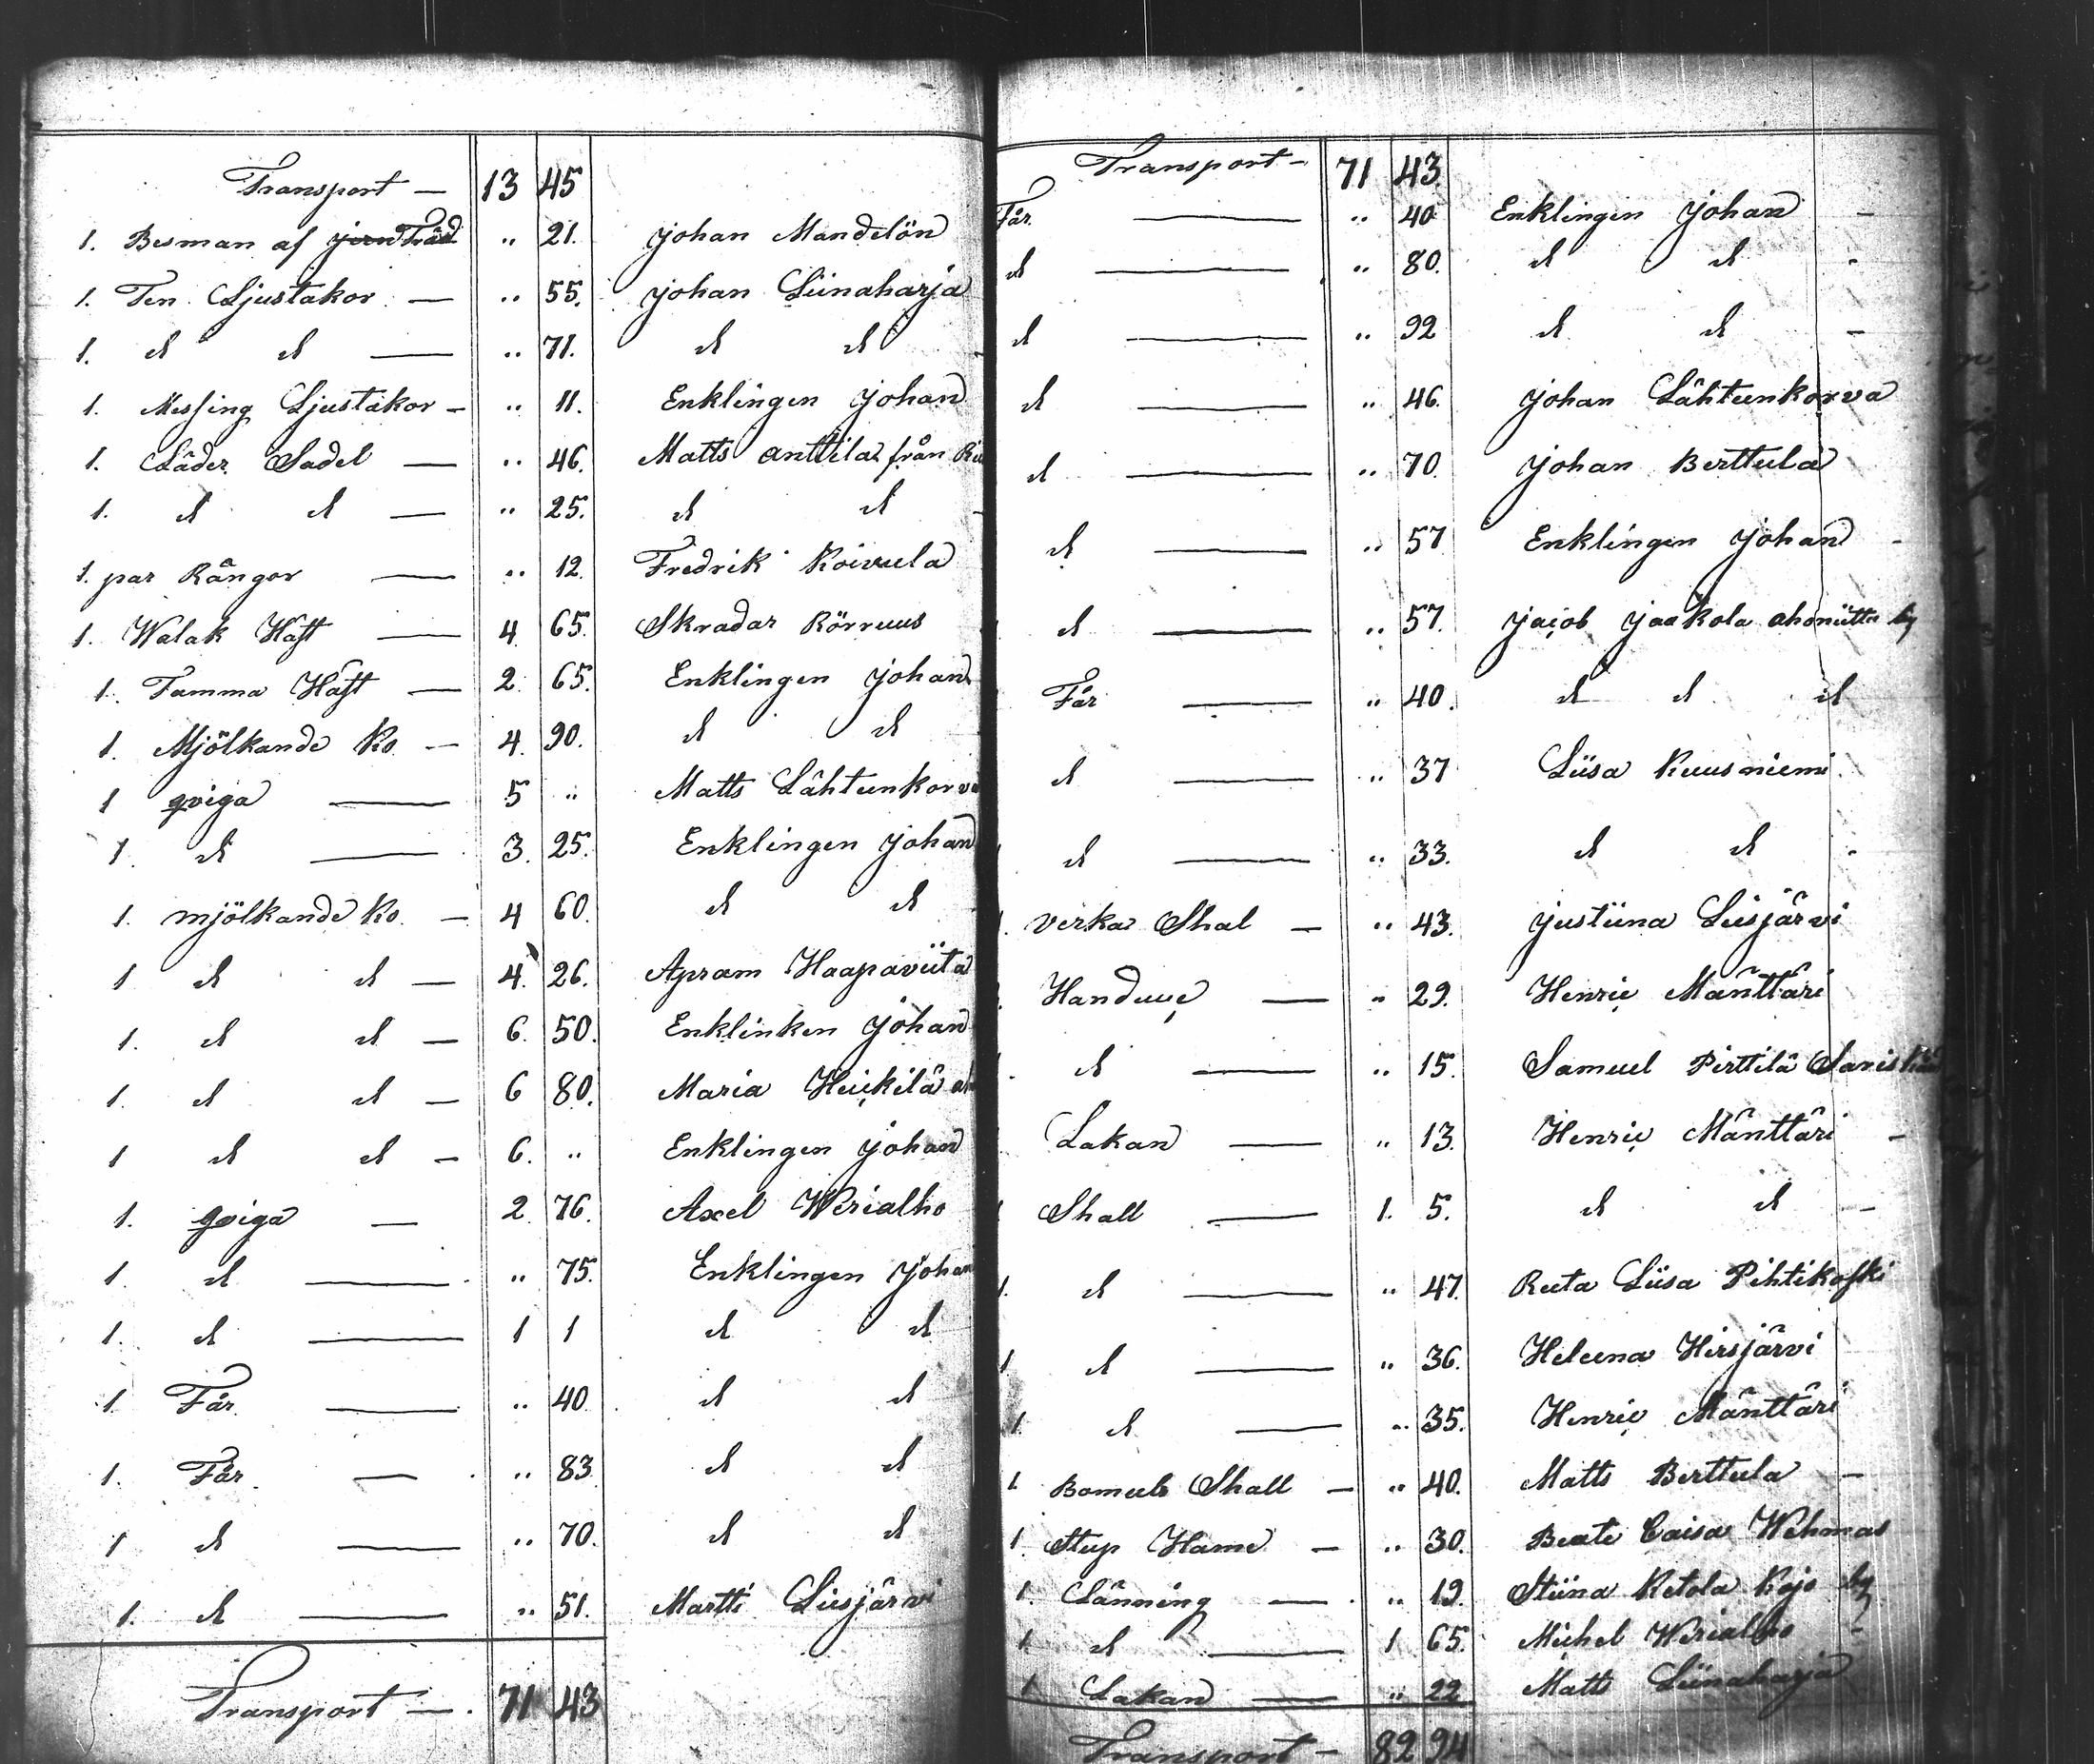 Transport — 13 45
1. Besman af jern Tråd .. 21. Johan Mandelön
1. Ten Ljustakor — .. 55. Johan Liinaharja
1. d d — .. 71. d d
1. Messing Ljustakor — .. 11. Enklingen Johan
1. Läder Sadel — .. 46. Matts Anttila från
1. d d — .. 25. d d
1. par Rångor — .. 12. Fredrik Koivula
1. Walak Häst — 4 65. Skradar Rörruus
1. Tamma Häst — 2. 65. Enklingen Johan
1. Mjölkande Ko. — 4. 90. d d
1 qviga — 5 .. Matts Lähteenkorva
1. d — 3. 25. Enklingen Johan
1. mjölkande Ko. — 4 60. d d
1 d d — 4. 26. Apram Haapaviita
1. d d — 6. 50. Enklinken Johan
1. d d — 6 80. Maria Heickilä
1 d d — 6. .. Enklingen Johan
1. qviga — 2. 76. Axel Werialho
1. d — .. 75. Enklingen Johan
1. d — 1 1 d d
1. Får — .. 40 d d
1. Får. — .. 83 d d
1 d — .. 70. d d
1. d — .. 51. Martti Liisjärvi
Transport — 71 43
Transport — 71 43
Får. — .. 40 Enklingen Johan —
d — .. 80. d d
d — .. 92 d d —
d — .. 46. Johan Lähteenkorva
d — .. 70. Johan Berttula
d — .. 57 Enklingen Johan
d — .. 57. Jacob Jaakola by
Får — .. 40. d d d
d — .. 37 Liisa Kuusniemi
d — .. 33. d d
verka Shal — .. 43. Justiina Liisjärvi
Handuuc — .. 29. Henric Mänttäri
d — .. 15. Samuel Pirttilä
Lakan — .. 13. Henric Mänttäri —
Shall — 1. 5. d d —
1. d — .. 47. Reeta Liisa Pihtikoski
1 d — .. 36. Heleena Hirsjärvi
1 d — .. 35. Henric Mänttäri
1. Bomuls Shall — .. 40. Matts Berttula —
1. Stup Hame — .. 30. Beata Caisa Wehmas
1. Länning — .. 19. Stiina Ketola Kojo by
1. d — 1 65. Michel Werialho
1 Lakan — .. 22 Matts Liinaharja
Transport — 82 94